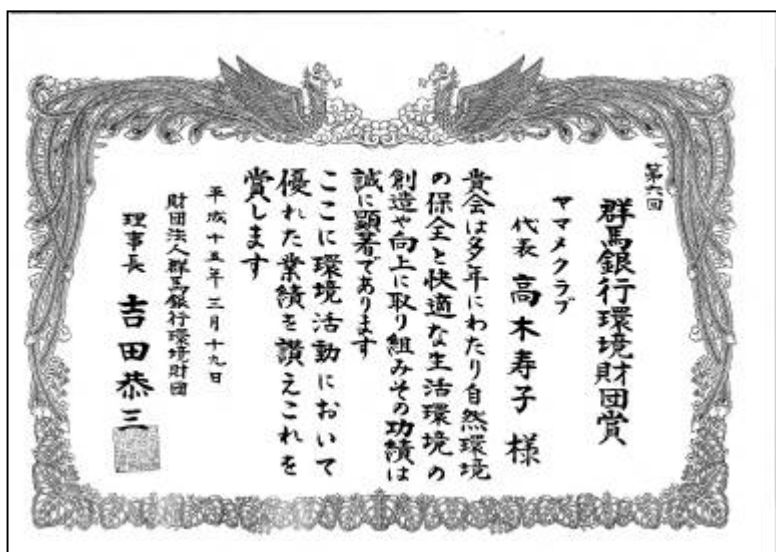 第六回
群馬銀行環境財団賞
ヤマメクラブ
代表 高木寿子 様
貴会は多年にわたり自然環境
の保全と快適な生活環境の
創造や向上に取り組みその功績は
誠に顕著であります
ここに環境活動において
優れた業績を讃えこれを
賞します
平成十五年三月十九日
財団法人群馬銀行環境財団
理事長 吉田恭三